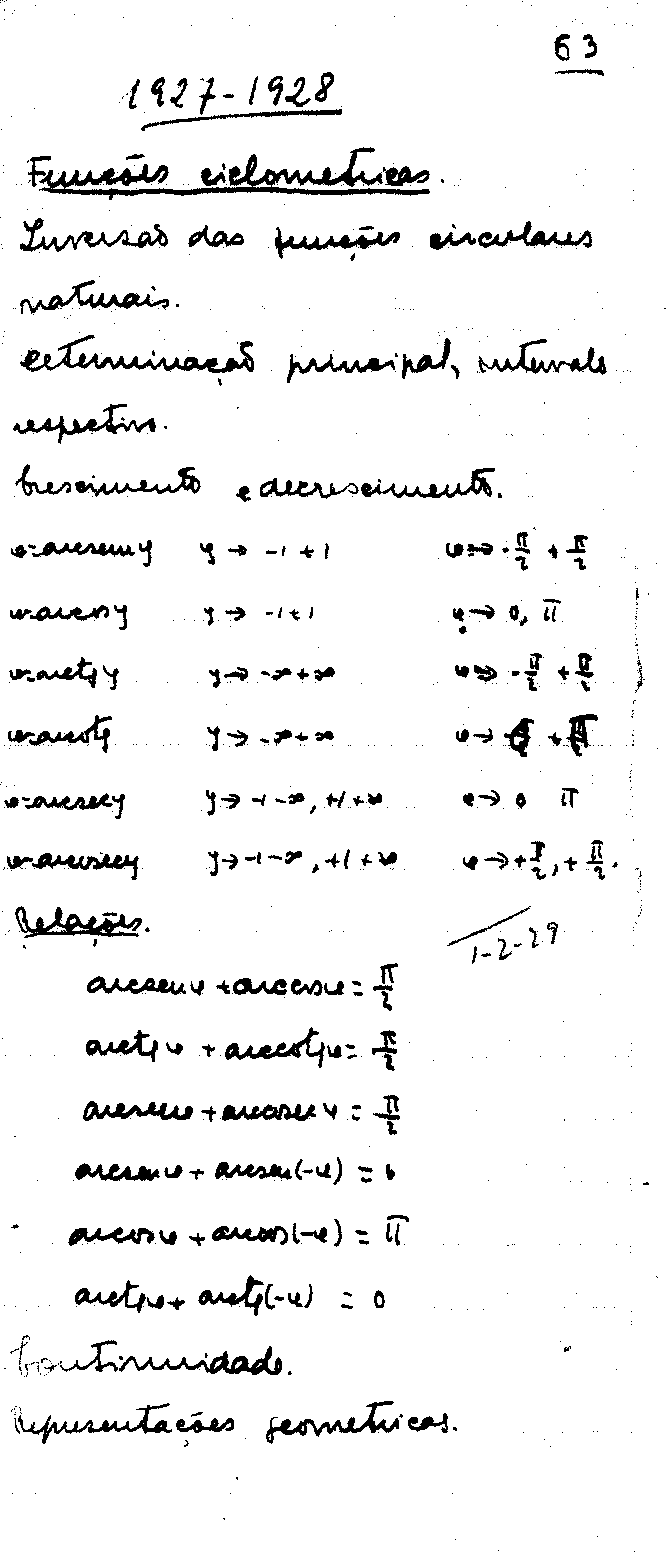 63
1927-1928
Funções ciclometricas.
Inversão das funções circulares
naturais.
Determinação principal, intervalo
respectivo.
Crescimento e decrescimento.
u=arcsen y y → -1 +1 u → -π/2 +π/2
u=arccos y y → -1 +1 u → 0, π
u=arctg y y → -∞ +∞ u → -π/2 +π/2
u=arcotg y → -∞ +∞ u →
u=arcsec y y → -1 -∞, +1 +∞ u → 0 π
u=arcosec y y → -1 -∞, +1 +∞ u → +π/2, +π/2.
Relações.
1-2-29
arcsen u + arccos u = π/2
arctg u + arccotg u = π/2
arcsec u + arcosec u = π/2
arcsen u + arcsen(-u) = 0
arcos u + arcos(-u) = π
arctg u + arctg(-u) = 0
Continuidade.
Representações geometricas.